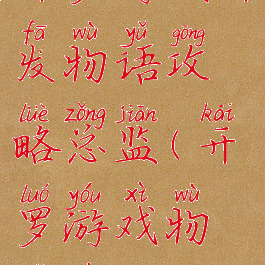 fā wù yǔ gōng
发物语攻
lüè zǒng jiān kāi
略总监(开
luó yóu xì wù
罗游戏物